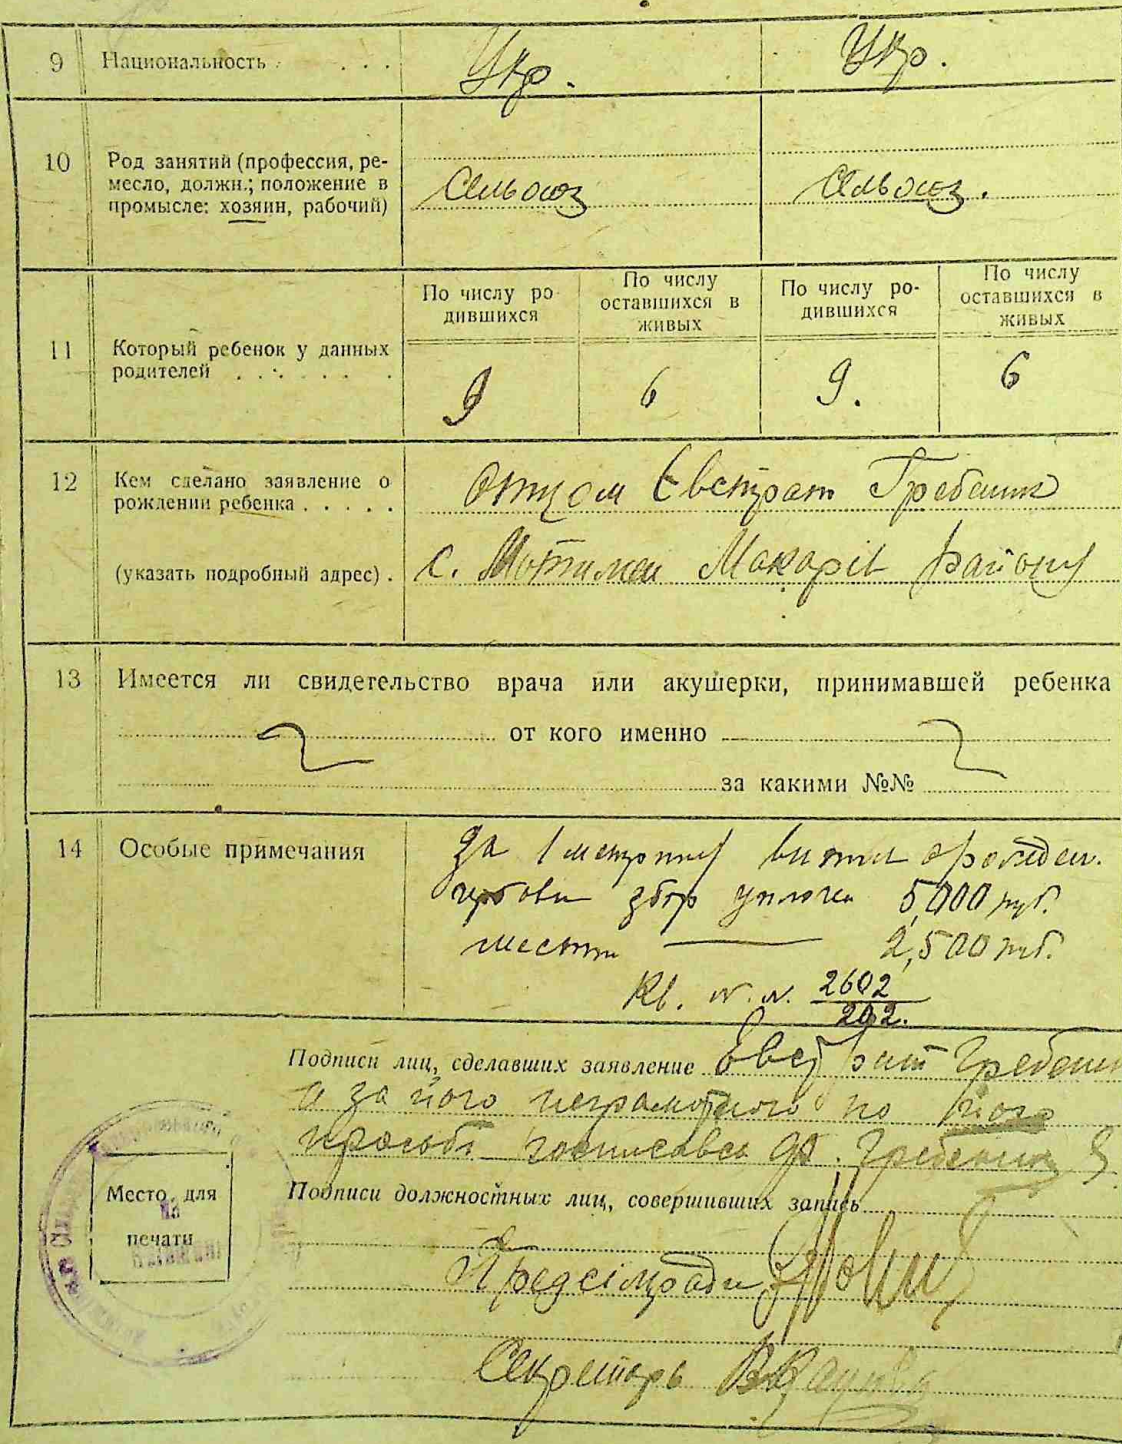 9 Национальность . . . . Укр. Укр.
10 Род занятий (профессия, ре-
месло, должн.; положение в
промысле: хозяин, рабочий)
Сельхоз Сельхоз.
11 Который ребенок у данных
родителей . . . . . .
По числу ро
дившихся
По числу
оставшихся в
живых
По числу ро-
дившихся
По числу
оставшихся в
живых
9 6 9. 6
12 Кем сделано заявление о
рождении ребенка . . . . .
отцом Євстрат Гребеник
(указать подробный адрес) .
с. Мотижин Макарів району
13 Имеется ли свидетельство врача или акушерки, принимавшей ребенка
от кого именно
за какими №№
14 Особые примечания
За
збор 5,000 руб.
2,500 руб.
Кв. N. N. 2602
202.
Подписи лиц, сделавших заявление Євстрат Гребеник
а за його неграмотного по його
просьбі росписався Гребеник
Подписи должностных лиц, совершивших запись
Место для
печати
Предсільради
Секретарь